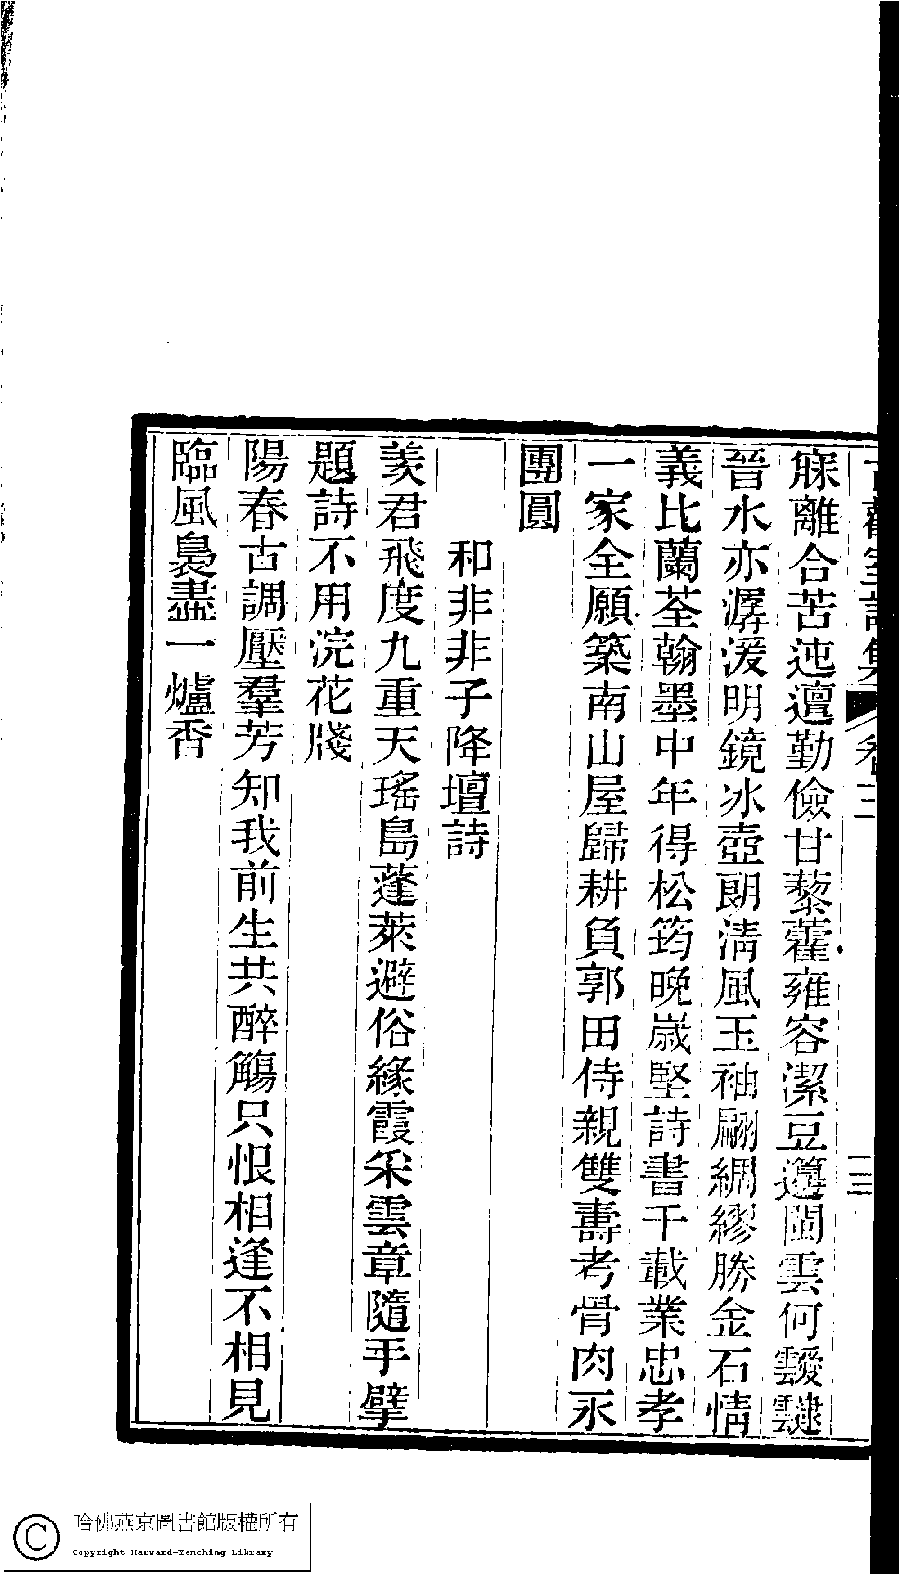 寐離合苦迍邅勤儉甘藜藿雍容潔豆籩閩雲何靉靆
晉水亦潺湲明鏡冰壺朗淸風玉袖翩綢繆勝金石情
義比蘭荃翰墨中年得松筠晚歲堅詩書千載業忠孝
一家全願築南山屋歸耕負郭田侍親雙壽考骨肉永
團圓
和非非子降壇詩
羨君飛度九重天瑤島蓬萊避俗緣霞釆雲章隨手擘
題詩不用浣花牋
陽春古調壓羣芳知我前生共醉觴只恨相逢不相見
臨風裊盡一爐香
哈佛燕京圖書館版權所有
Copyright Harvard-Yenching Library